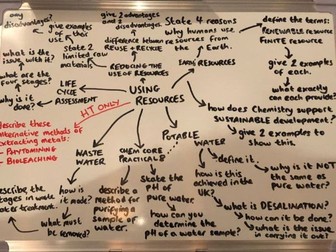 any
disadvantages?
give examples
of their
use
what is the
issue with it?
what are the
four stages?
why is it
done?
LIFE
CYCLE
ASSESSMENT
STATE 2
limited raw
materials
give 2 advantages
and 2
difference between
REUSE + RECYCLE
REDUCING THE
USE OF RESOURCES
State 4 reasons
why humans use
resources from
the Earth.
EARTH RESOURCES
define the terms:
RENEWABLE RESOURCE
FINITE RESOURCE
give 2
examples of
each.
what exactly
can each provide
USING
RESOURCES
HT ONLY
describe these
alternative methods of
extracting metals:
- PHYTOMINING
- BIOLEACHING
how does Chemistry support
SUSTAINABLE development?
give 2 examples to
show this.
WASTE
WATER
describe the
stages in
treatment
how is
it made?
what must
be removed?
CHEM CORE
PRACTICAL 8
describe a
method for
purifying a
sample of
water.
POTABLE
WATER
State the
pH of
pure water
how can you
determine the
pH of a water sample?
define it.
how is this
achieved in the
UK?
why is it NOT
the same as
pure water?
what is DESALINATION?
how can it
be done?
what is the issue